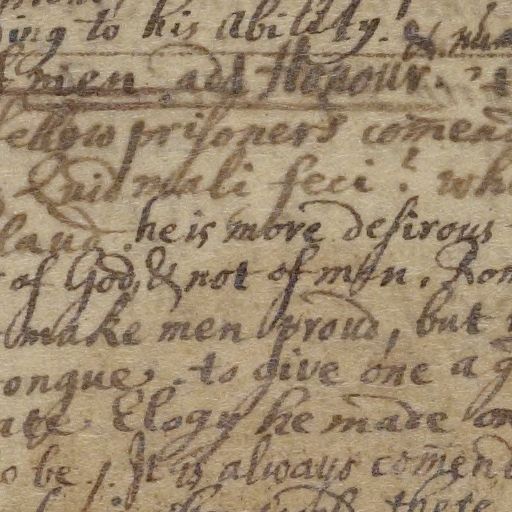 ing to his ability.
men and Honour.
fellow prisoners comend
Quid mali feci? wh
laud. he is more desirous
of God, & not of men. Rom
make men proud, but
tongue, to give one a g
ate Elogy he made on
o be. It is always comend